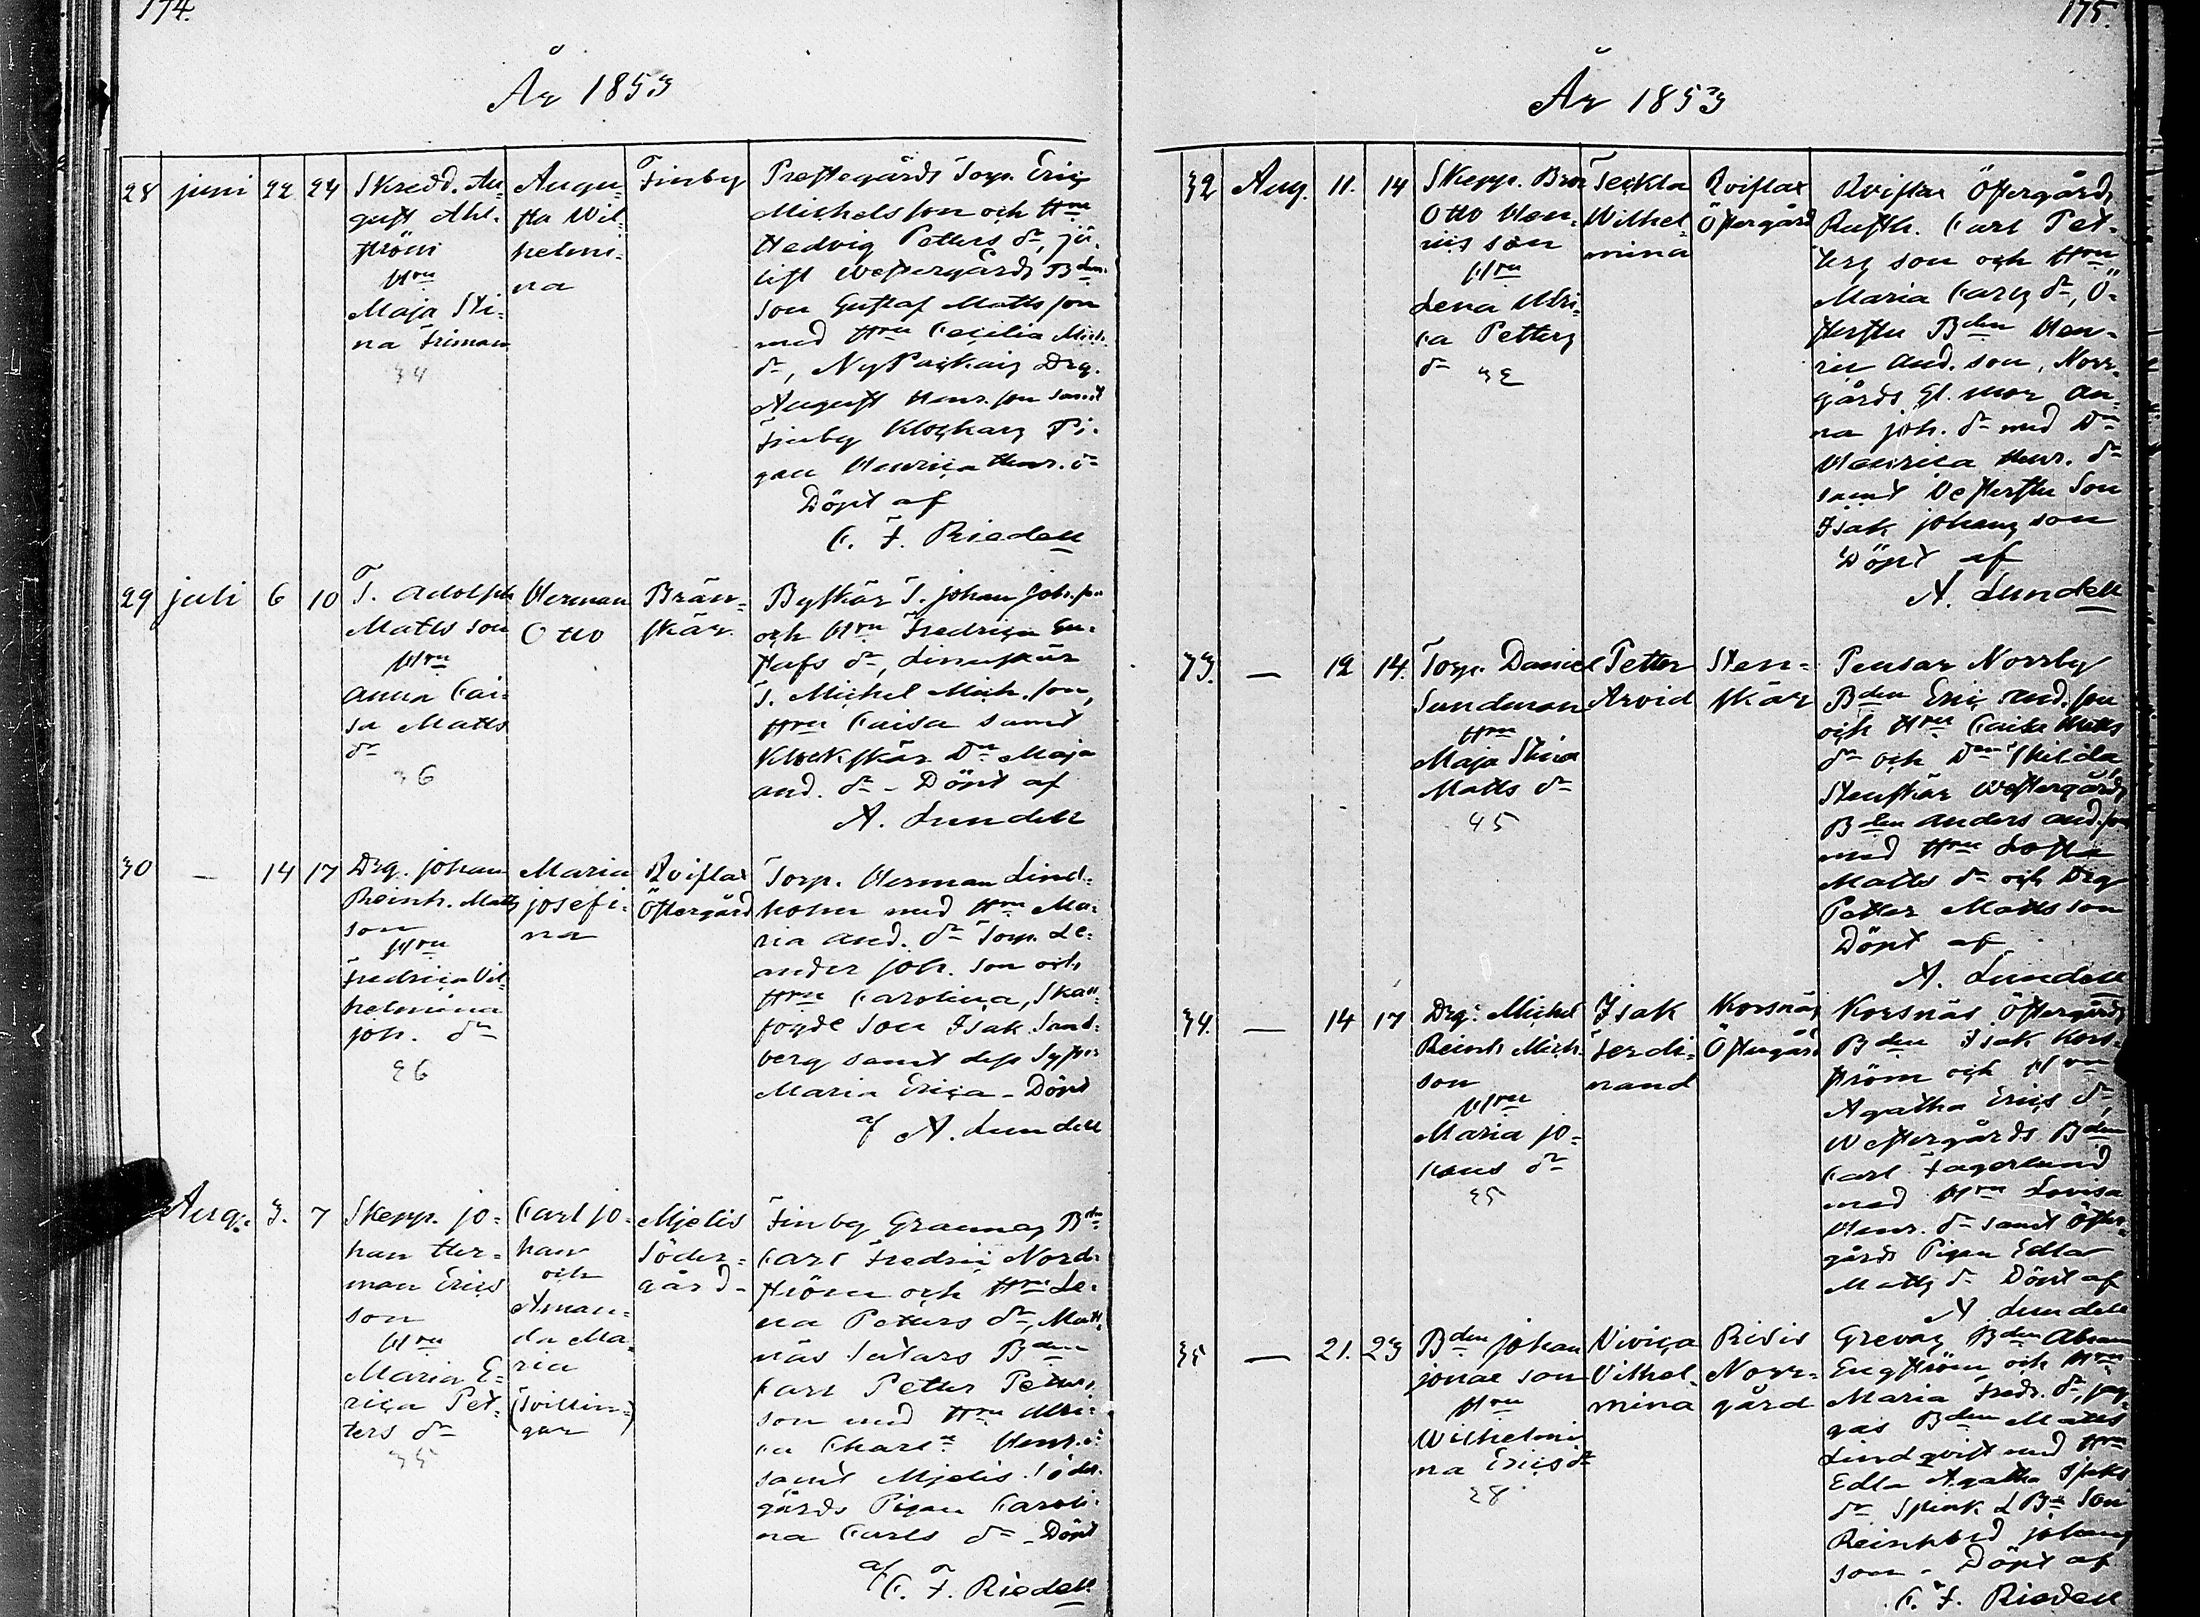 174.
År 1853
28 juni 22 24
Skredd. Au-
gust Ahl-
ström
Hru
Maja Sti-
na Friman
34
Augu-
sta Wil-
helmi-
na
Finby
Prestegårds Torp. Eric
Michelsson och Hru
Hedvig Petters dr,
Westergårds Bdn
son Gustaf Mattsson
med Hru Cecilia Mich.
dr, Drg.
August Henr. son samt
Finby Klockars Pi-
gan Henrica Henr. dr
Döpt af
C. F. Riedell
29 juli 6 10
T. Adolph
Matts son
Hru
Anna Cai-
sa Matts
dr
36
Herman
Otto
Brän-
skär
Byskär T. Johan Joh. son
och Hru Fredrica Gu-
stafs dr,
T. Michel Mich. son,
Hru Caisa samt
Klockskär Dr Maja
And. dr - Döpt af
A. Lundell
30 - 14 17
Drg. Johan
Reinh. Matts
son
Hru
Fredrica Vil-
helmina
Joh. dr
26
Maria
Josefi-
na
Qviflax
Östergård
Torp. Herman Lind-
holm med Hru Ma-
ria And. dr Torp. Le-
ander Joh. son och
Hru Carolina, Skall-
fogde Son Isak Sand-
berg samt dess Syster
Maria Erica - Döpt
af A. Lundell
Aug. 3. 7
Skepp. Jo-
han Her-
man Erics
son
Hru
Maria E-
rica Pet-
ters dr
35
Carl Jo-
han
och
Aman-
da Ma-
ria
(Tvillin-
gar)
Mjelis
Söder-
gård -
Finby Grannas Bdn
Carl Fredric Nord-
ström och Hru Le-
na Petters dr, Matt-
näs Bden
Carl Petter Petters
son med Hru Ulri-
ca Charl. Henr. dr
samt Mjelis Söder-
gårds Pigan Caroli-
na Carls dr - Döpt
af
C. F. Riedell
175.
År 1853
32 Aug. 11. 14
Skepp. Bror
Otto Hen-
rics son
Hru
Lena Ulri-
ca Petters
dr 32
Teckla
Wilhel-
mina
Qviflax
Östergård
Qviflax Östergårds
Rusth. Carl Pet-
ters son och Hru
Maria Carls dr, Ö-
Bden Hen-
ric And. son, Norr-
gårds Gl. mor An-
na Joh. dr med Dr
Henrica Henr. dr
samt Son
Isak Johans son
Döpt af
A. Lundell
33. — 12 14.
Torp. Daniel
Sundman
Hru
Maja Stina
Matts dr
45
Petter
Arvid
Sten-
skär
Pensar Norrby
Bden Eric And. son
och Hru Caisa Matts
dr och
Stenskär Westergårds
Bden Anders And. son
med Hru Lotta
Matts dr och Drg
Petter Matts son
Döpt af
A. Lundell
34. — 14 17
Drg. Michel
Reinh Mich.
son
Hru
Maria Jo-
hans dr
35
Isak
Ferdi-
nand
Korsnäs
Östergård
Korsnäs Östergårds
Bden Isak Kors-
ström och Hru
Agatha Erics dr,
Westergårds Bden
Carl Fagerlund
med Hru Lovisa
Henr. dr samt Öster-
gårds Pigan Edla
Matts dr Döpt af
A. Lundell
35 — 21. 23
Bden Johan
Jonae son
Hru
Wilhelmi-
na Erics dr
28
Viviça
Vilhel-
mina
Risis
Norr-
gård
Grevas Bden Abram
Engström och Hru
Maria Fredr. dr,
Bden Matts
Lindqvist med Hru
Edla Agatha Isaks
dr Son
Reinhold Johans
son - Döpt af
C. F. Riedell